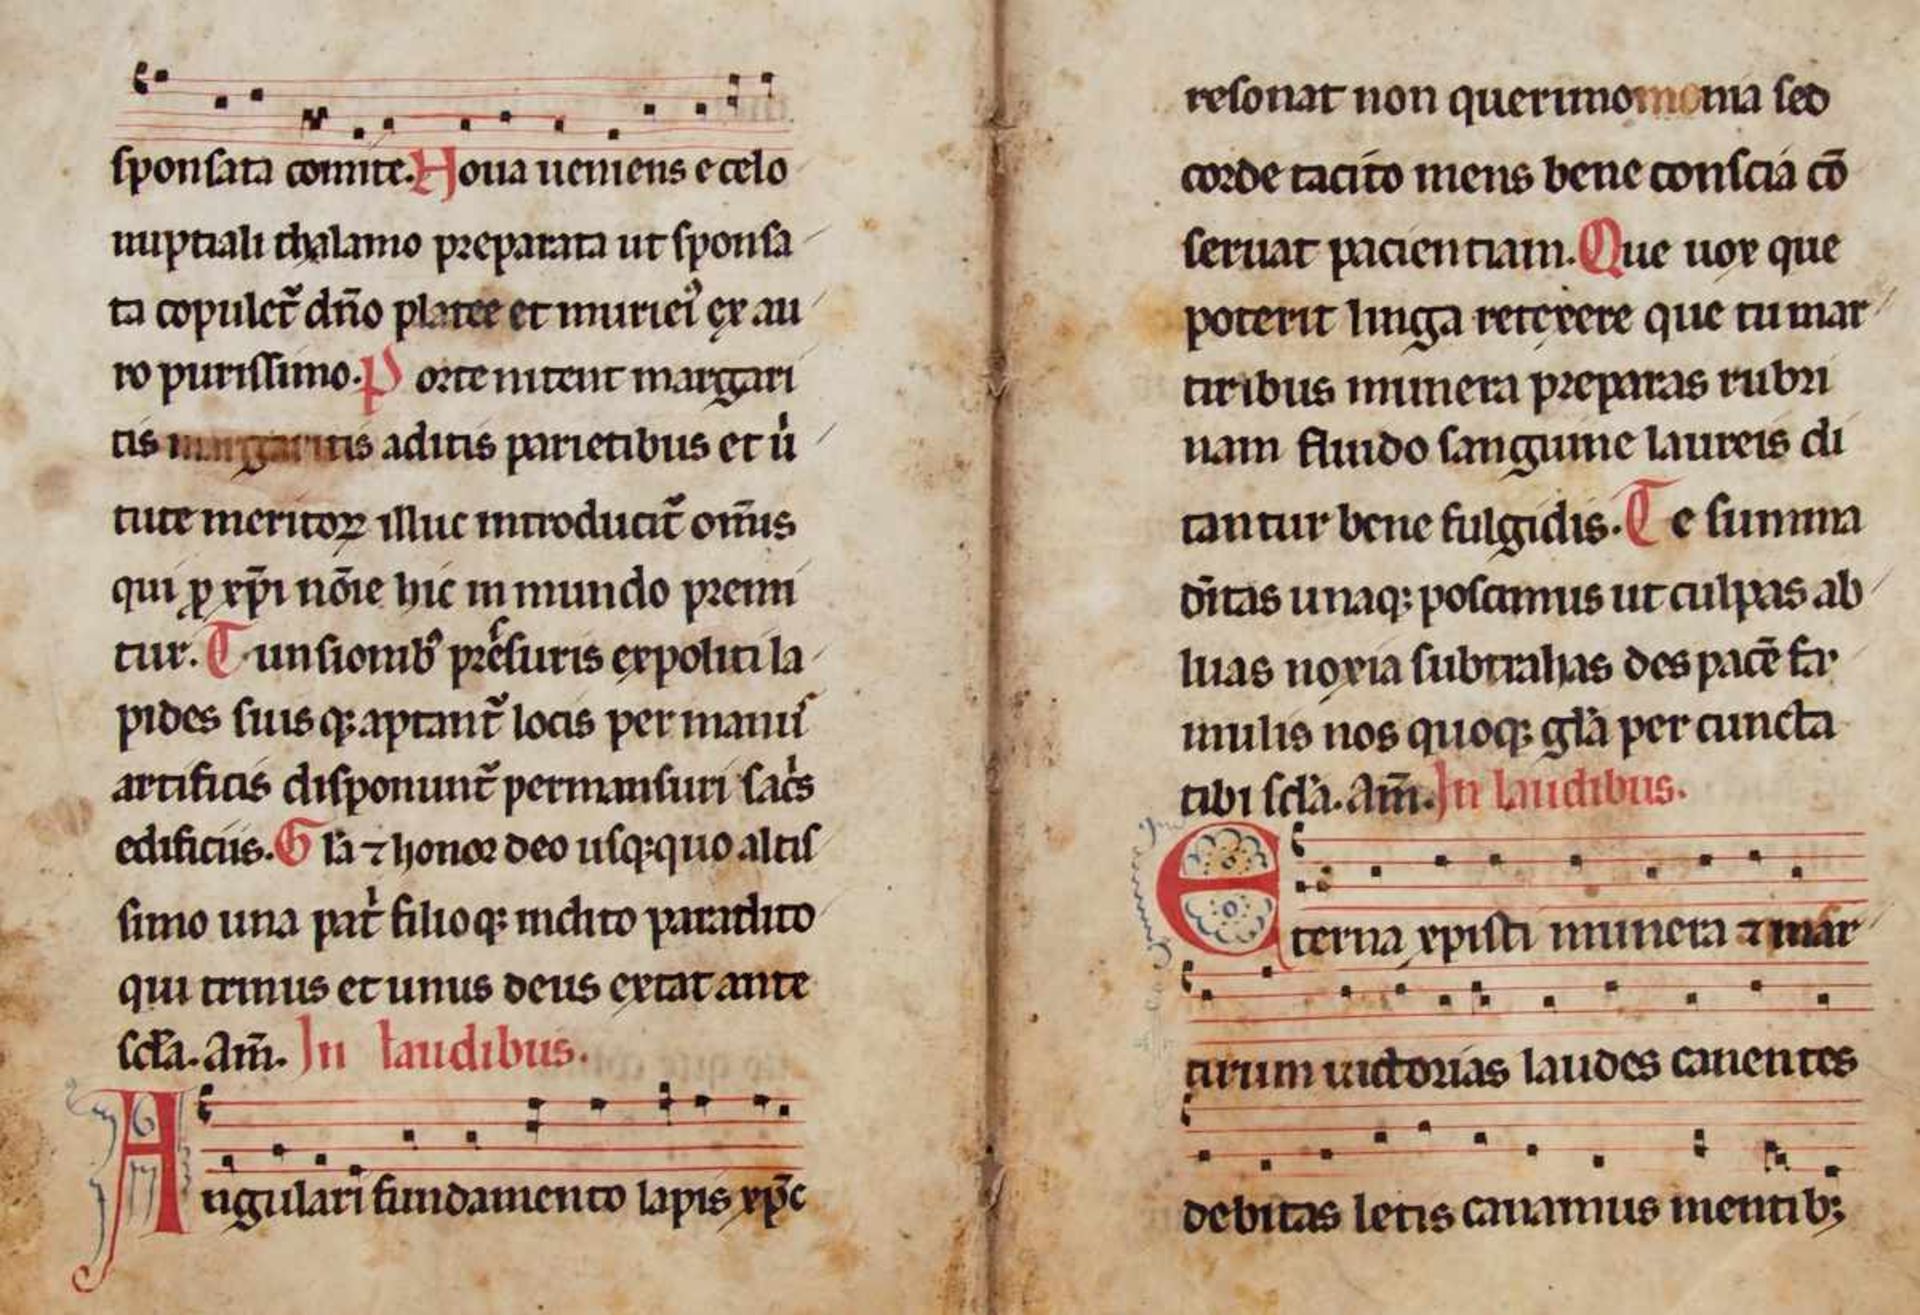 sponsata comite. Noua ueniens e celo
nuptiali thalamo preparata ut sponsa
ta copulet᷑ dño platee et muri ei᷒ ex au
ro purissimo. Porte nitent margari
tis margaritis aditis parietibus et ui̍
tute meritoꝝ illuc introducit᷑ om̄is
qui ꝓ xp̄i nōie hic in mundo premi
tur. Tunsionib᷒ pressuris expoliti la
pides suisqꝫ aptant᷑ locis per manus
artificis disponunt᷑ permansuri sacͥs
edificiis. Gla ⁊ honor deo usqꝫquo altis
simo una patͥ filioqꝫ inclito paraclito
qui trinus et unus deus extat ante
scl̄a. Am̄. In laudibus.
Angulari fundamento lapis xp̄c
resonat non querimomonia sed
corde tacito mens bene conscia cō
seruat pacientiam. Que uox que
poterit linga retexere que tu mar
tiribus munera preparas rubri
nam fluido sanguine laureis di
tantur bene fulgidis. Te summa
dītas unaqꝫ poscimus ut culpas ab
luas noxia subtrahas des pacē fa
mulis nos quoqꝫ gl̄a per cuncta
tibi scl̄a. Am̄. In laudibus.
Eterna xpisti munera ⁊ mar
tirum uictorias laudes canentes
debitas letis canamus mentibꝫ